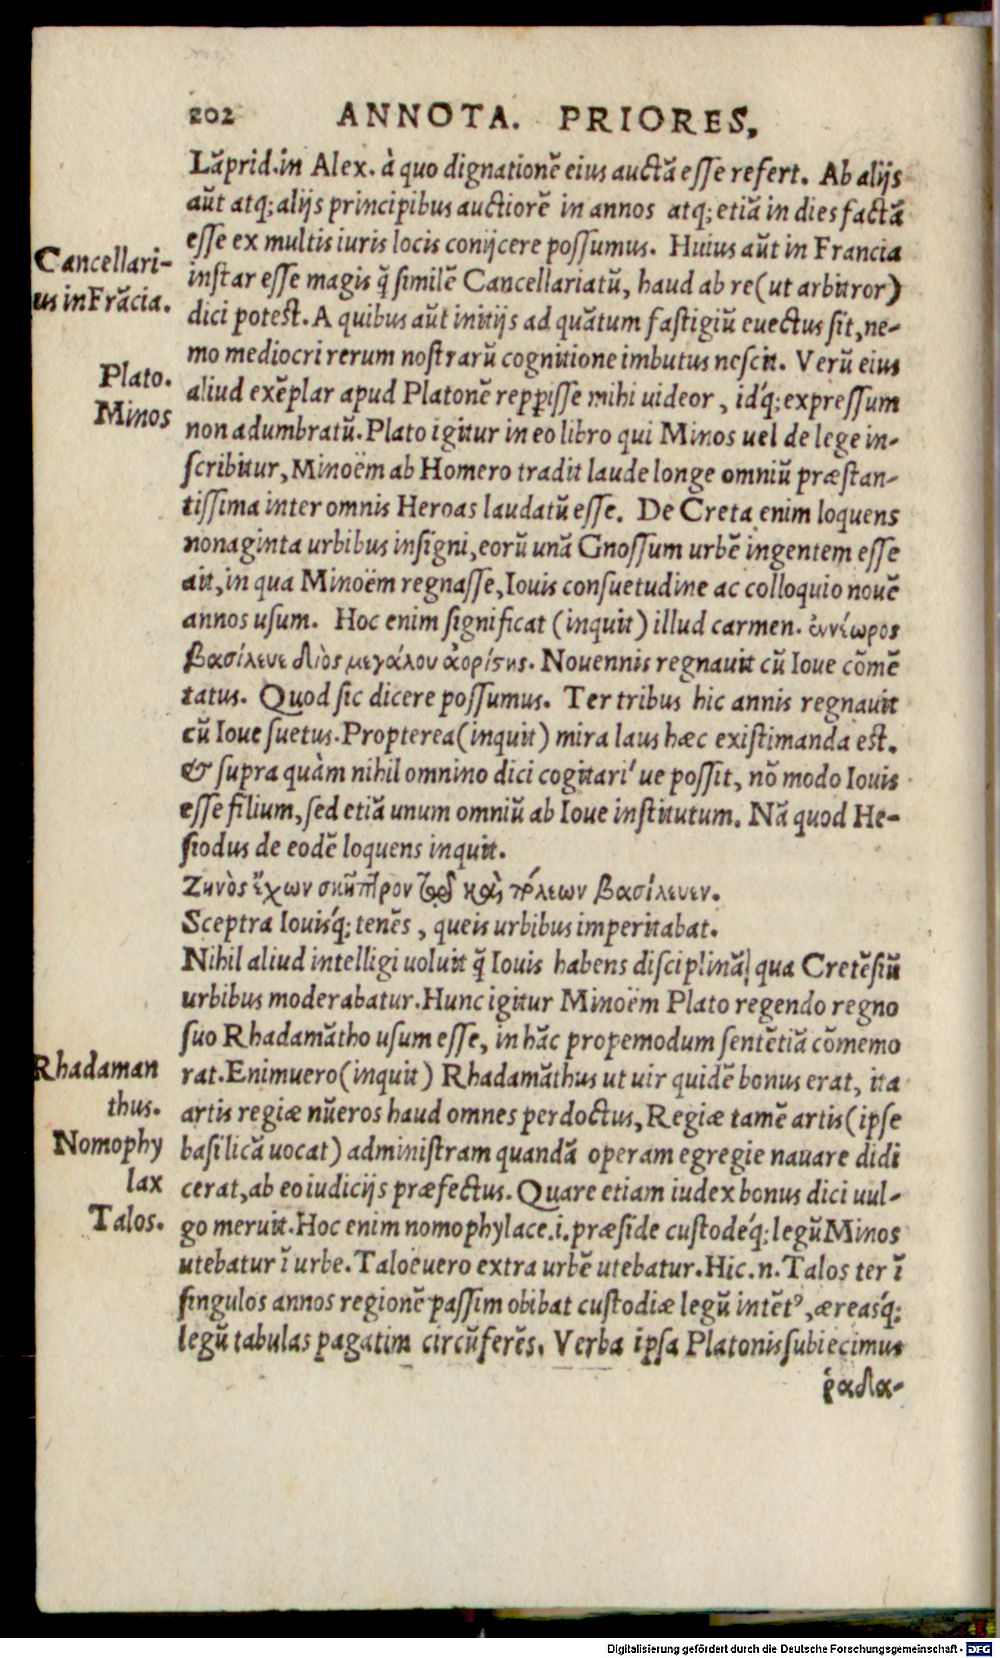 202 ANNOTA. PRIORES,
Lãprid.in Alex. à quo dignationẽ eius auctã esse refert. Ab alijs
aũt atq; alijs principibus auctiorẽ in annos atq; etiã in dies factã
esse ex multis iuris locis conijcere possumus. Huius aũt in Francia
Cancellari-
instar esse magis q̃ similẽ Cancellariatũ, haud ab re (ut arbitror)
us in Frãcia.
dici potest. A quibus aũt initijs ad quãtum fastigiũ euectus sit, ne-
mo mediocri rerum nostrarũ cognitione imbutus nescit. Verũ eius
Plato.
aliud exẽplar apud Platonẽ repperisse mihi uideor, idq́; expressum
Minos
non adumbratũ. Plato igitur in eo libro qui Minos uel de lege in-
scribitur, Minoëm ab Homero tradit laude longe omniũ præstan-
tissima inter omnis Heroas laudatũ esse. De Creta enim loquens
nonaginta urbibus insigni, eorũ unã Gnossum urbẽ ingentem esse
ait, in qua Minoëm regnasse, Iouis consuetudine ac colloquio nouẽ
annos usum. Hoc enim significat (inquit) illud carmen. ἐννέωρος
βασίλευε διὸς μεγάλου ὀαριστής. Nouennis regnauit cũ Ioue cõmẽ
tatus. Quod sic dicere possumus. Ter tribus hic annis regnauit
cũ Ioue suetus. Propterea (inquit) mira laus hæc existimanda est.
& supra quàm nihil omnino dici cogitari'ue possit, nõ modo Iouis
esse filium, sed etiã unum omniũ ab Ioue institutum. Nã quod He-
siodus de eodẽ loquens inquit.
Ζηνὸς ἔχων σκῆπτρον τῷδε καὶ πόλεων βασίλευεν.
Sceptra Iouisq́; tenẽs, queis urbibus imperitabat.
Nihil aliud intelligi uoluit q̃ Iouis habens disciplinã, qua Cretẽsiũ
urbibus moderabatur. Hunc igitur Minoëm Plato regendo regno
suo Rhadamãtho usum esse, in hãc propemodum sentẽtiã cõmemo
Rhadaman
rat. Enimuero (inquit) Rhadamãthus ut uir quidẽ bonus erat, ita
thus.
artis regiæ nũeros haud omnes perdoctus, Regiæ tamẽ artis (ipse
Nomophy
basilicã uocat) administram quandã operam egregie nauare didi
lax
cerat, ab eo iudicijs præfectus. Quare etiam iudex bonus dici uul-
Talos.
go meruit. Hoc enim nomophylace.i. præside custodeq́; legũ Minos
utebatur ĩ urbe. Taloe uero extra urbẽ utebatur. Hic.n. Talos ter ĩ
singulos annos regionẽ passim obibat custodiæ legũ intẽtꝰ, æreasq́;
legũ tabulas pagatim circũferẽs. Verba ipsa Platonis subiecimus
ῥαδα-
Digitalisierung gefördert durch die Deutsche Forschungsgemeinschaft - DFG